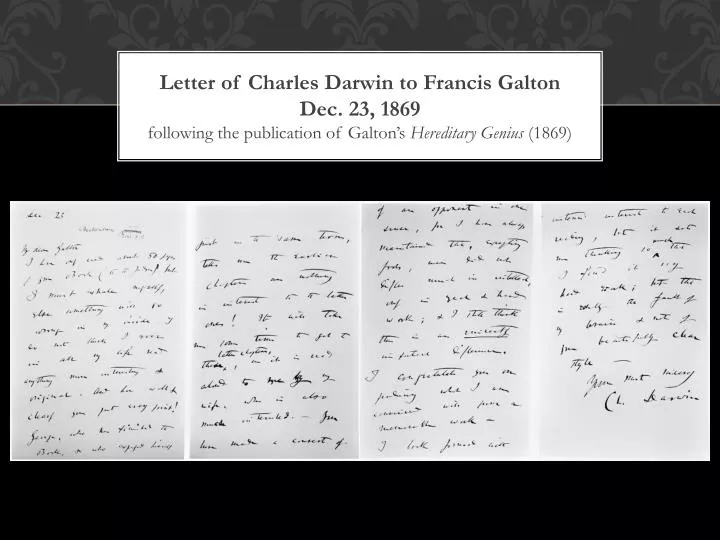 Letter of Charles Darwin to Francis Galton
Dec. 23, 1869
following the publication of Galton’s Hereditary Genius (1869)
Dec. 23
My dear Galton
I have only read about 50 pages
of your Book (to the Judges) but
I must exhale myself,
else something will go
wrong in my inside. I
do not think I ever
in all my life read
anything more interesting &
original. And how well &
clearly you put every point!
George, who has finished the
Book, & who expressed himself
just in the same terms,
tells me the earlier
chapters are nothing
in interest to the later
ones! It will take
me some time to get to
these latter chapters, as it is read
aloud to me by my
wife, who is also
much interested. — You
have made a convert of
an opponent in one
sense, for I have always
maintained that, excepting
fools, men did not
differ much in intellect,
only in zeal & hard
work; & I still think
there is an eminently
important difference.
I congratulate you on
producing what I am
convinced will prove a
memorable work —
I look forward with
intense interest to each
reading, but it sets
me thinking so much that
I find it very
hard work; but that
is wholly the fault of
my brain & not of
your beautifully clear
style —
Yours most sincerely
Ch. Darwin